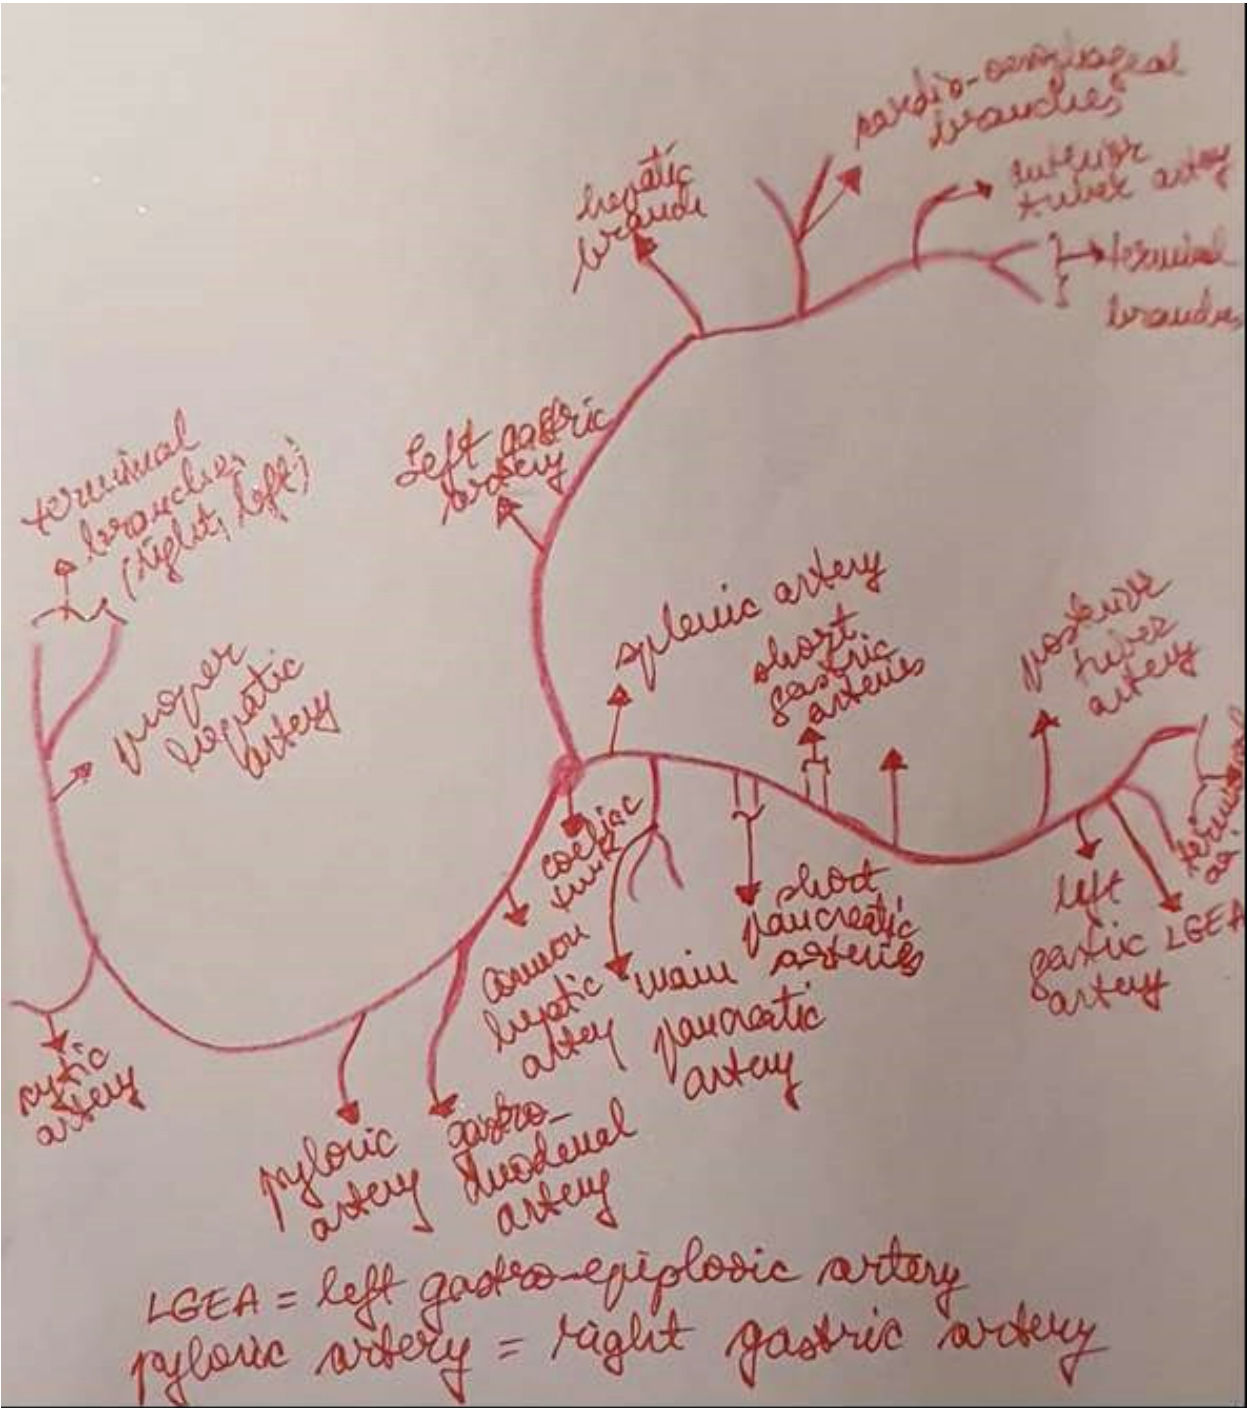 cardio-oesophageal
branches
hepatic
branch
anterior
tuber artery
terminal
branches
Left gastric
artery
terminal
branches
(right, left)
splenic artery
short
gastric
arteries
posterior
tuber
artery
proper
hepatic
artery
terminal
coeliac
trunk
short
pancreatic
arteries
left
gastric
artery
LGEA
common
hepatic
artery
main
pancreatic
artery
cystic
artery
pyloric
artery
gastro-
duodenal
artery
LGEA = left gastro-epiploic artery
pyloric artery = right gastric artery